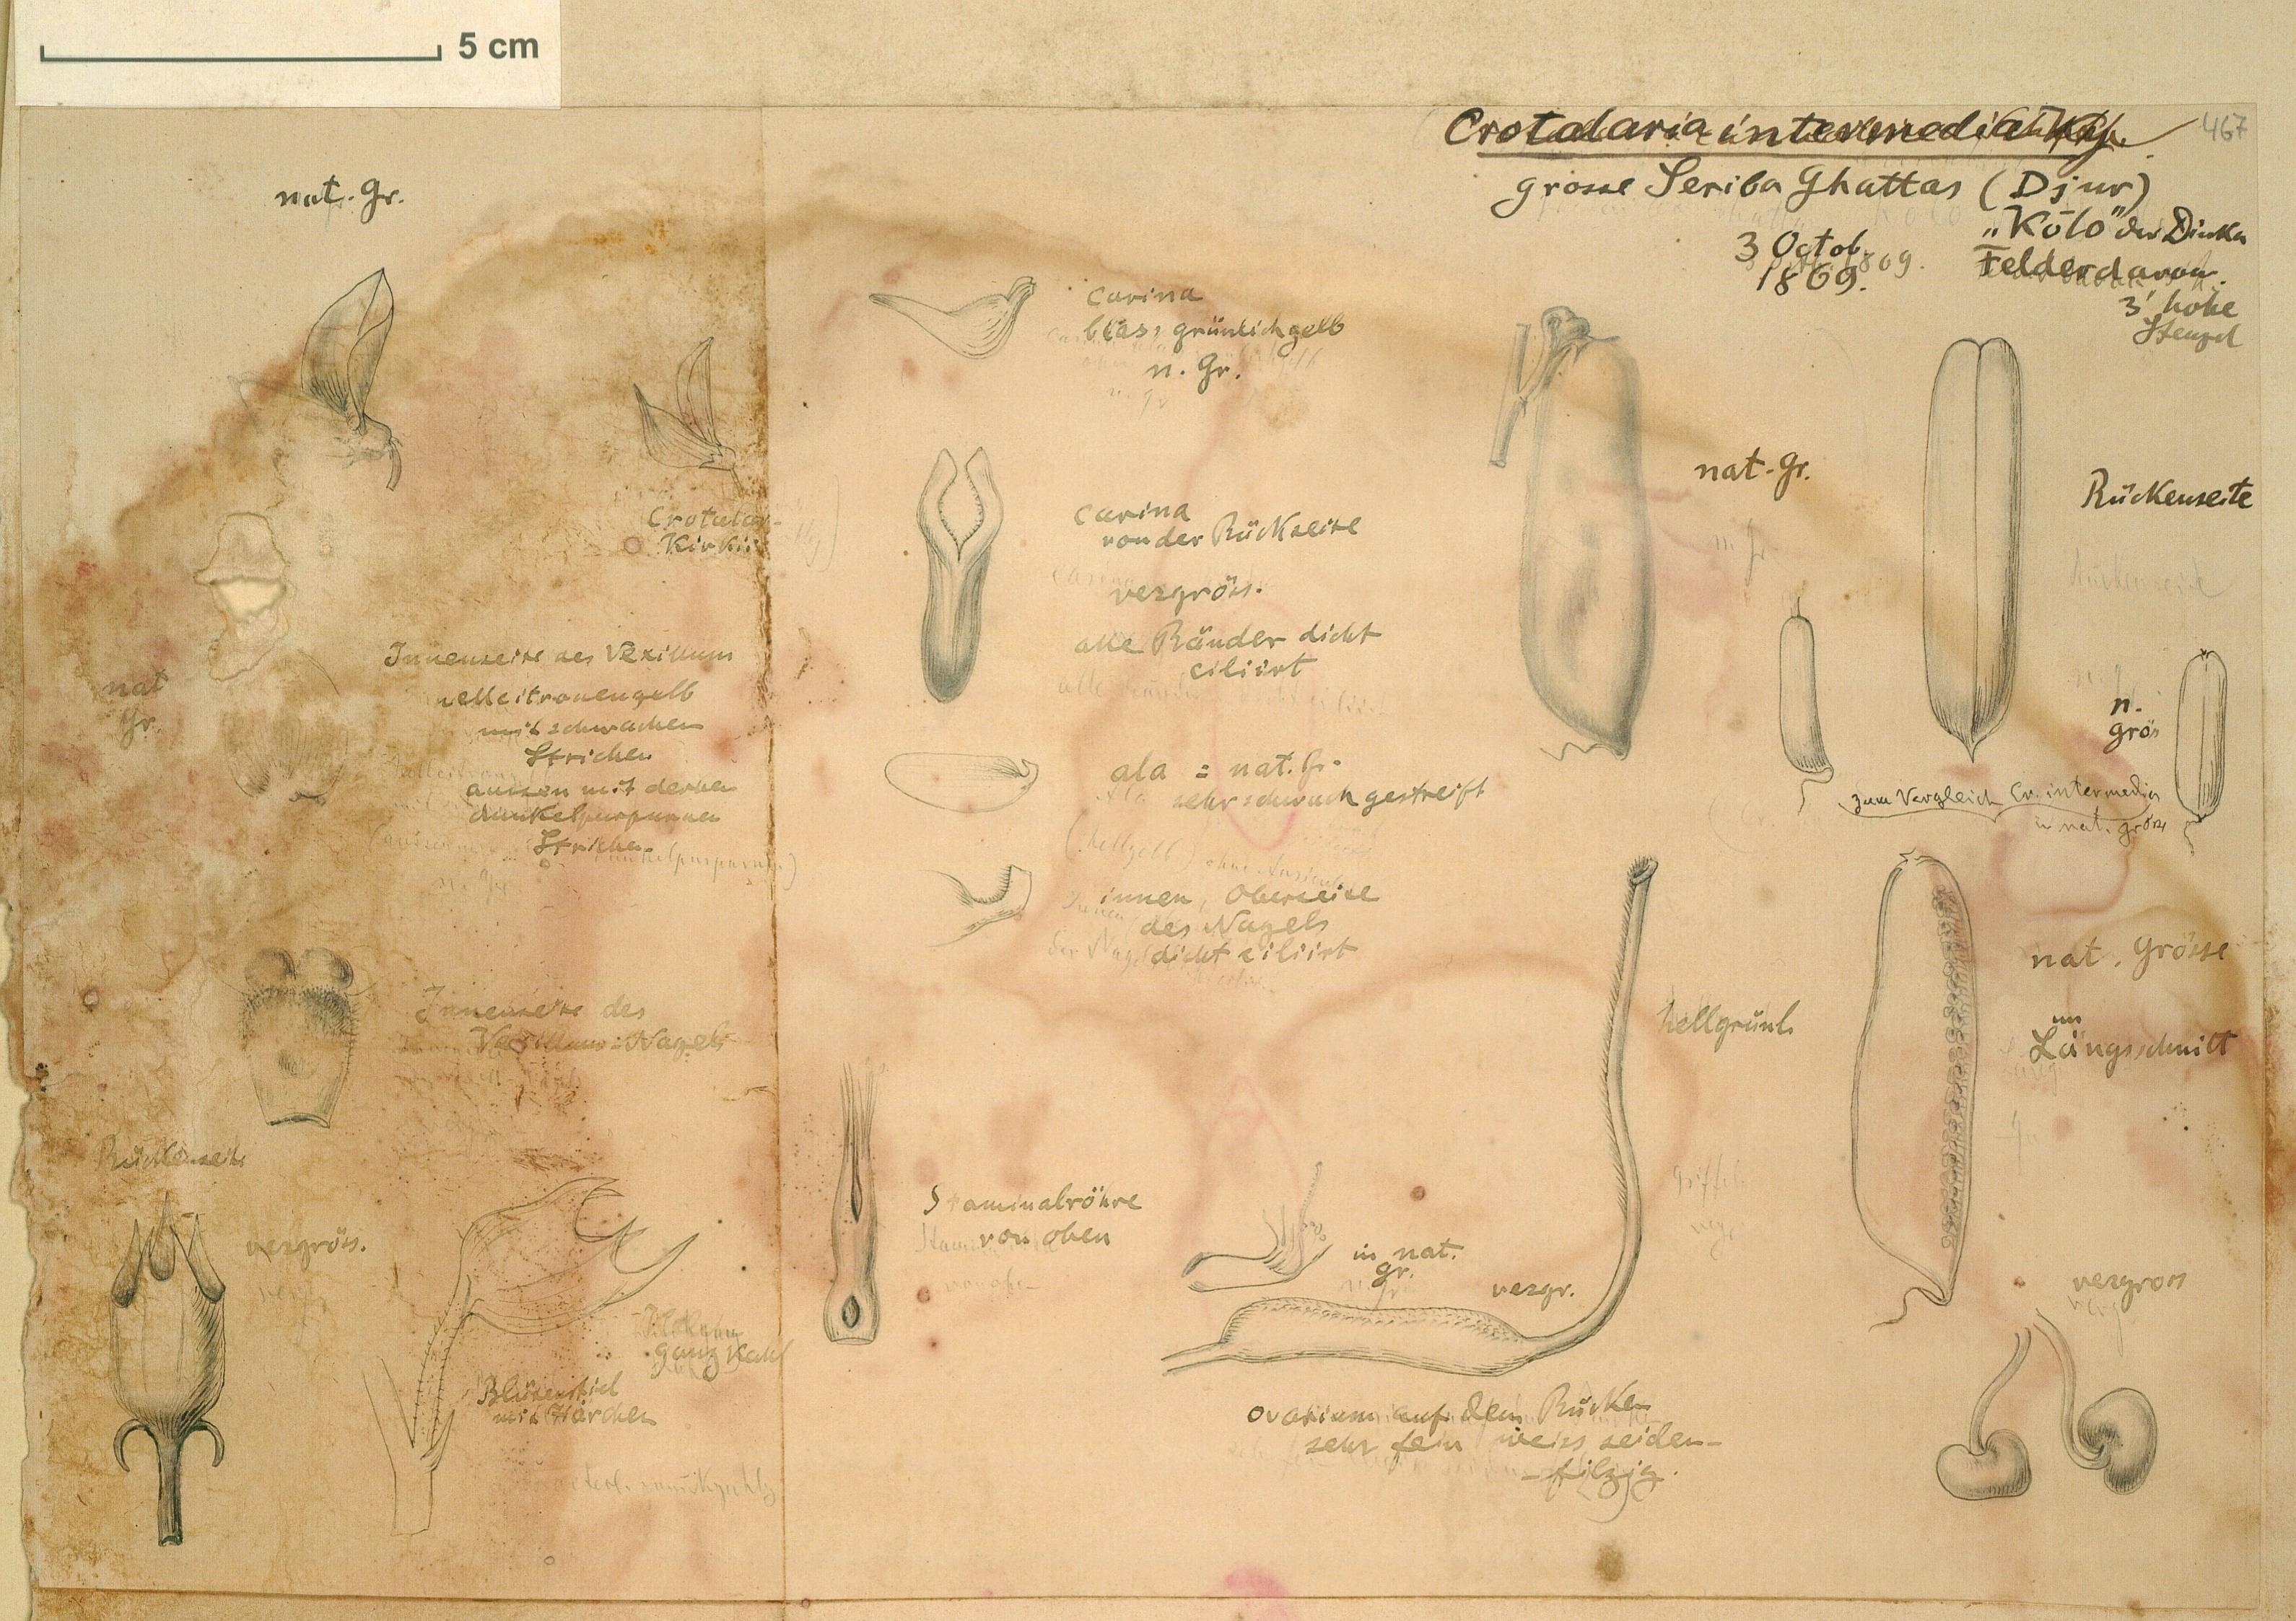 5 cm
467
Crotalaria intermedia Ky.
grosse Seriba Ghattas (Djur)
"Kōlo" der Dinka
3 Octob.
1869.
Felder davon.
3' hohe
Stengel
nat. gr.
Crotalar.
Kirkii
nat
gr.
Innenseite des Vexillum
hellcitronengelb
mit schwachen
Strichen
aussen mit derben
dunkelpurpurnen
Strichen
Innenseite des
Vexillum-Nagels
Rückenseite
vergrös.
ganz kahl
Blütenstiel
mit Härchen
carina
blass grünlichgelb
n. Gr.
carina
von der Rückseite
vergrös.
alle Ränder dicht
ciliirt
ala = nat. Gr.
sehr schwach gestreift
(hellgelb) ohne
innen, Oberseite
des Nagels
dicht ciliirt
Staminalröhre
von oben
in nat.
gr.
vergr.
hellgrünl.
Griffel
ovarium auf dem Rücken
sehr fein weiss seiden-
-filzig.
nat. gr.
Rückenseite
n.
grös
zum Vergleich Cr. intermedia
in nat. grösse
nat. Grösse
im
Längsschnitt
vergröss